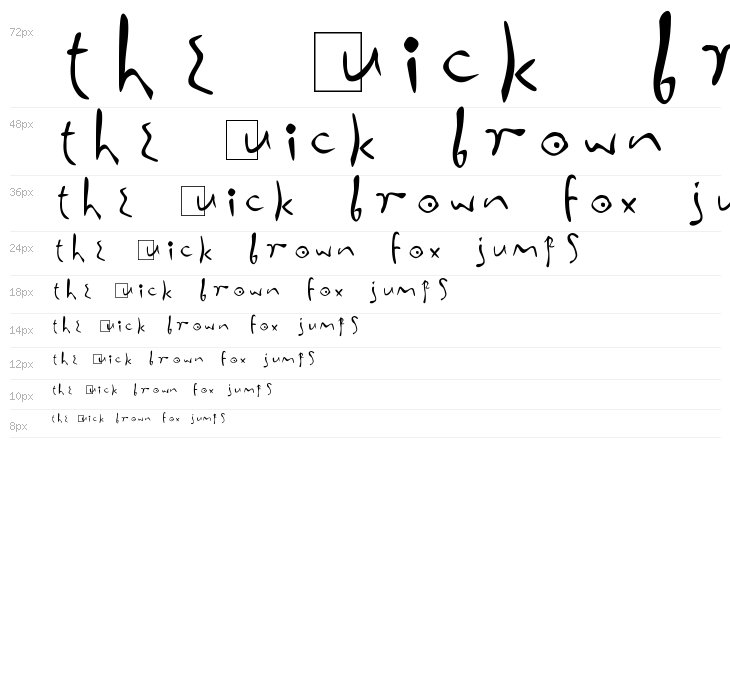 72px the □uick br
48px the □uick brown
36px the □uick brown fox ju
24px the □uick brown fox jumps
18px the □uick brown fox jumps
14px the □uick brown fox jumps
12px the □uick brown fox jumps
10px the □uick brown fox jumps
8px the □uick brown fox jumps